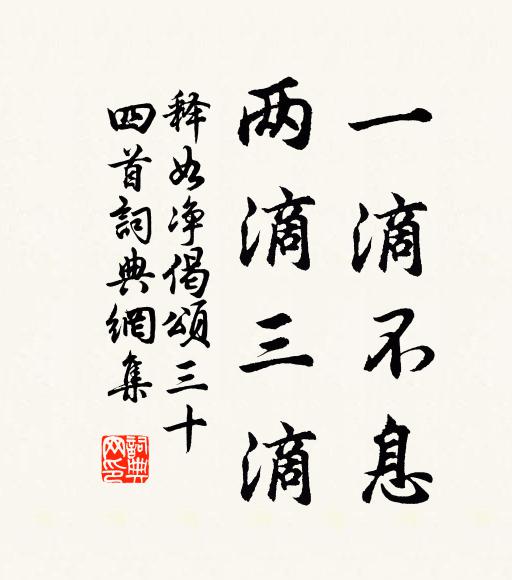 一滴不息
两滴三滴
释如净偈颂三十
四首詞典網集
詞典
网印